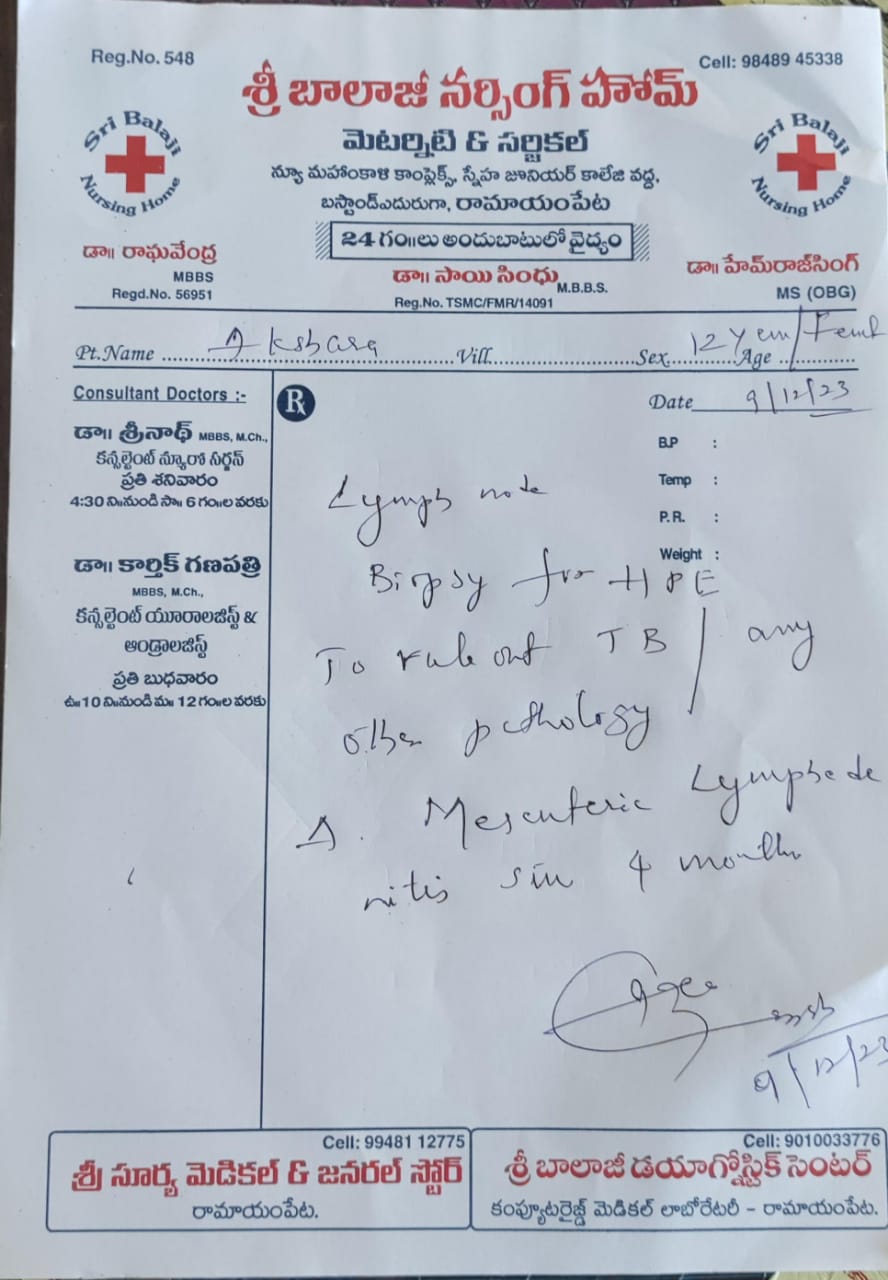 Reg.No. 548
Cell: 98489 45338
శ్రీ బాలాజీ నర్సింగ్ హోమ్
Sri Balaji Nursing Home
మెటర్నిటి & సర్జికల్
Sri Balaji Nursing Home
న్యూ మహాంకాళ కాంప్లెక్స్, స్నేహ జూనియర్ కాలేజి వద్ద,
బస్టాండ్ఎదురుగా, రామాయంపేట
24 గం॥లు అందుబాటులో వైద్యం
డా॥ రాఘవేంద్ర
MBBS
Regd.No. 56951
డా॥ సాయి సింధు M.B.B.S.
Reg.No. TSMC/FMR/14091
డా॥ హేమ్‌రాజ్‌సింగ్
MS (OBG)
Pt.Name Akshara Vill. Sex 12 Age
Date 9/12/23
Consultant Doctors :-
డా॥ శ్రీనాథ్ MBBS, M.Ch.,
కన్సల్టెంట్ న్యూరో సర్జన్
ప్రతి శనివారం
4:30 ని॥నుండి సా॥ 6 గం॥ల వరకు
డా॥ కార్తిక్ గణపత్రి
MBBS, M.Ch.,
కన్సల్టెంట్ యూరాలజిస్ట్ &
ఆండ్రాలజిస్ట్
ప్రతి బుధవారం
ఉ॥ 10 ని॥నుండి మ॥ 12 గం॥ల వరకు
Rx
B.P :
Temp :
P.R. :
Weight :
Lymph node
Biopsy for HPE
To rule out TB / any
other pathology
Δ. Mesenteric Lymphade
nitis sin 4 months
9/12/23
Cell: 99481 12775
శ్రీ సూర్య మెడికల్ & జనరల్ స్టోర్
రామాయంపేట.
Cell: 9010033776
శ్రీ బాలాజీ డయాగ్నోస్టిక్ సెంటర్
కంప్యూటరైజ్డ్ మెడికల్ లాబోరేటరీ - రామాయంపేట.